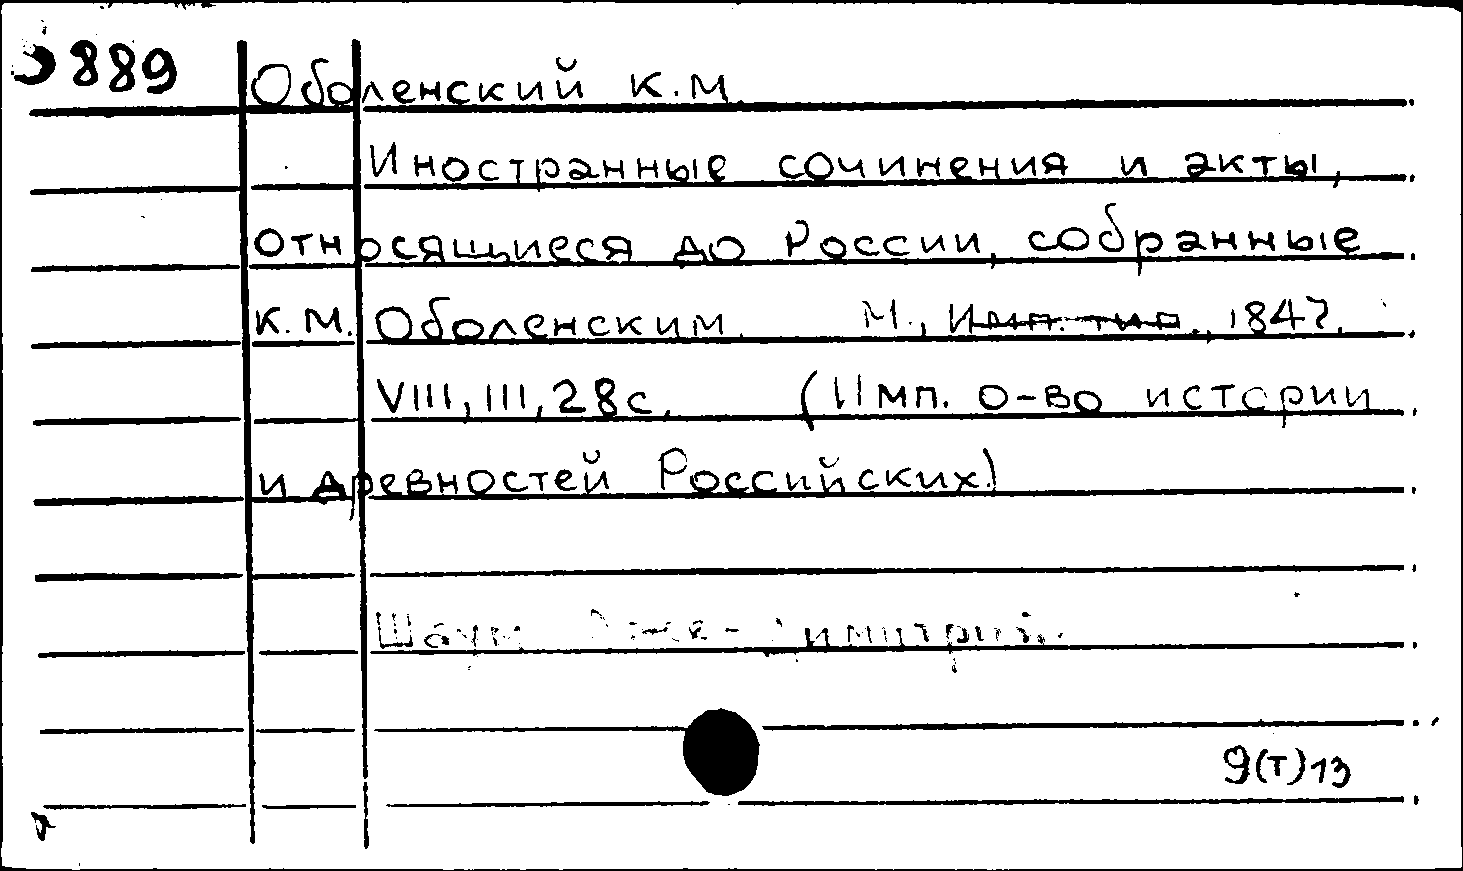 889
Оболенский К.М.
Иностранные сочинения и акты,
относящиеся до России, собранные
К.М. Оболенским. М., Имп. тип., 1847.
VIII, III, 28 с. (Имп. о-во истории
и древностей Российских)
Шаум
9(Т)13